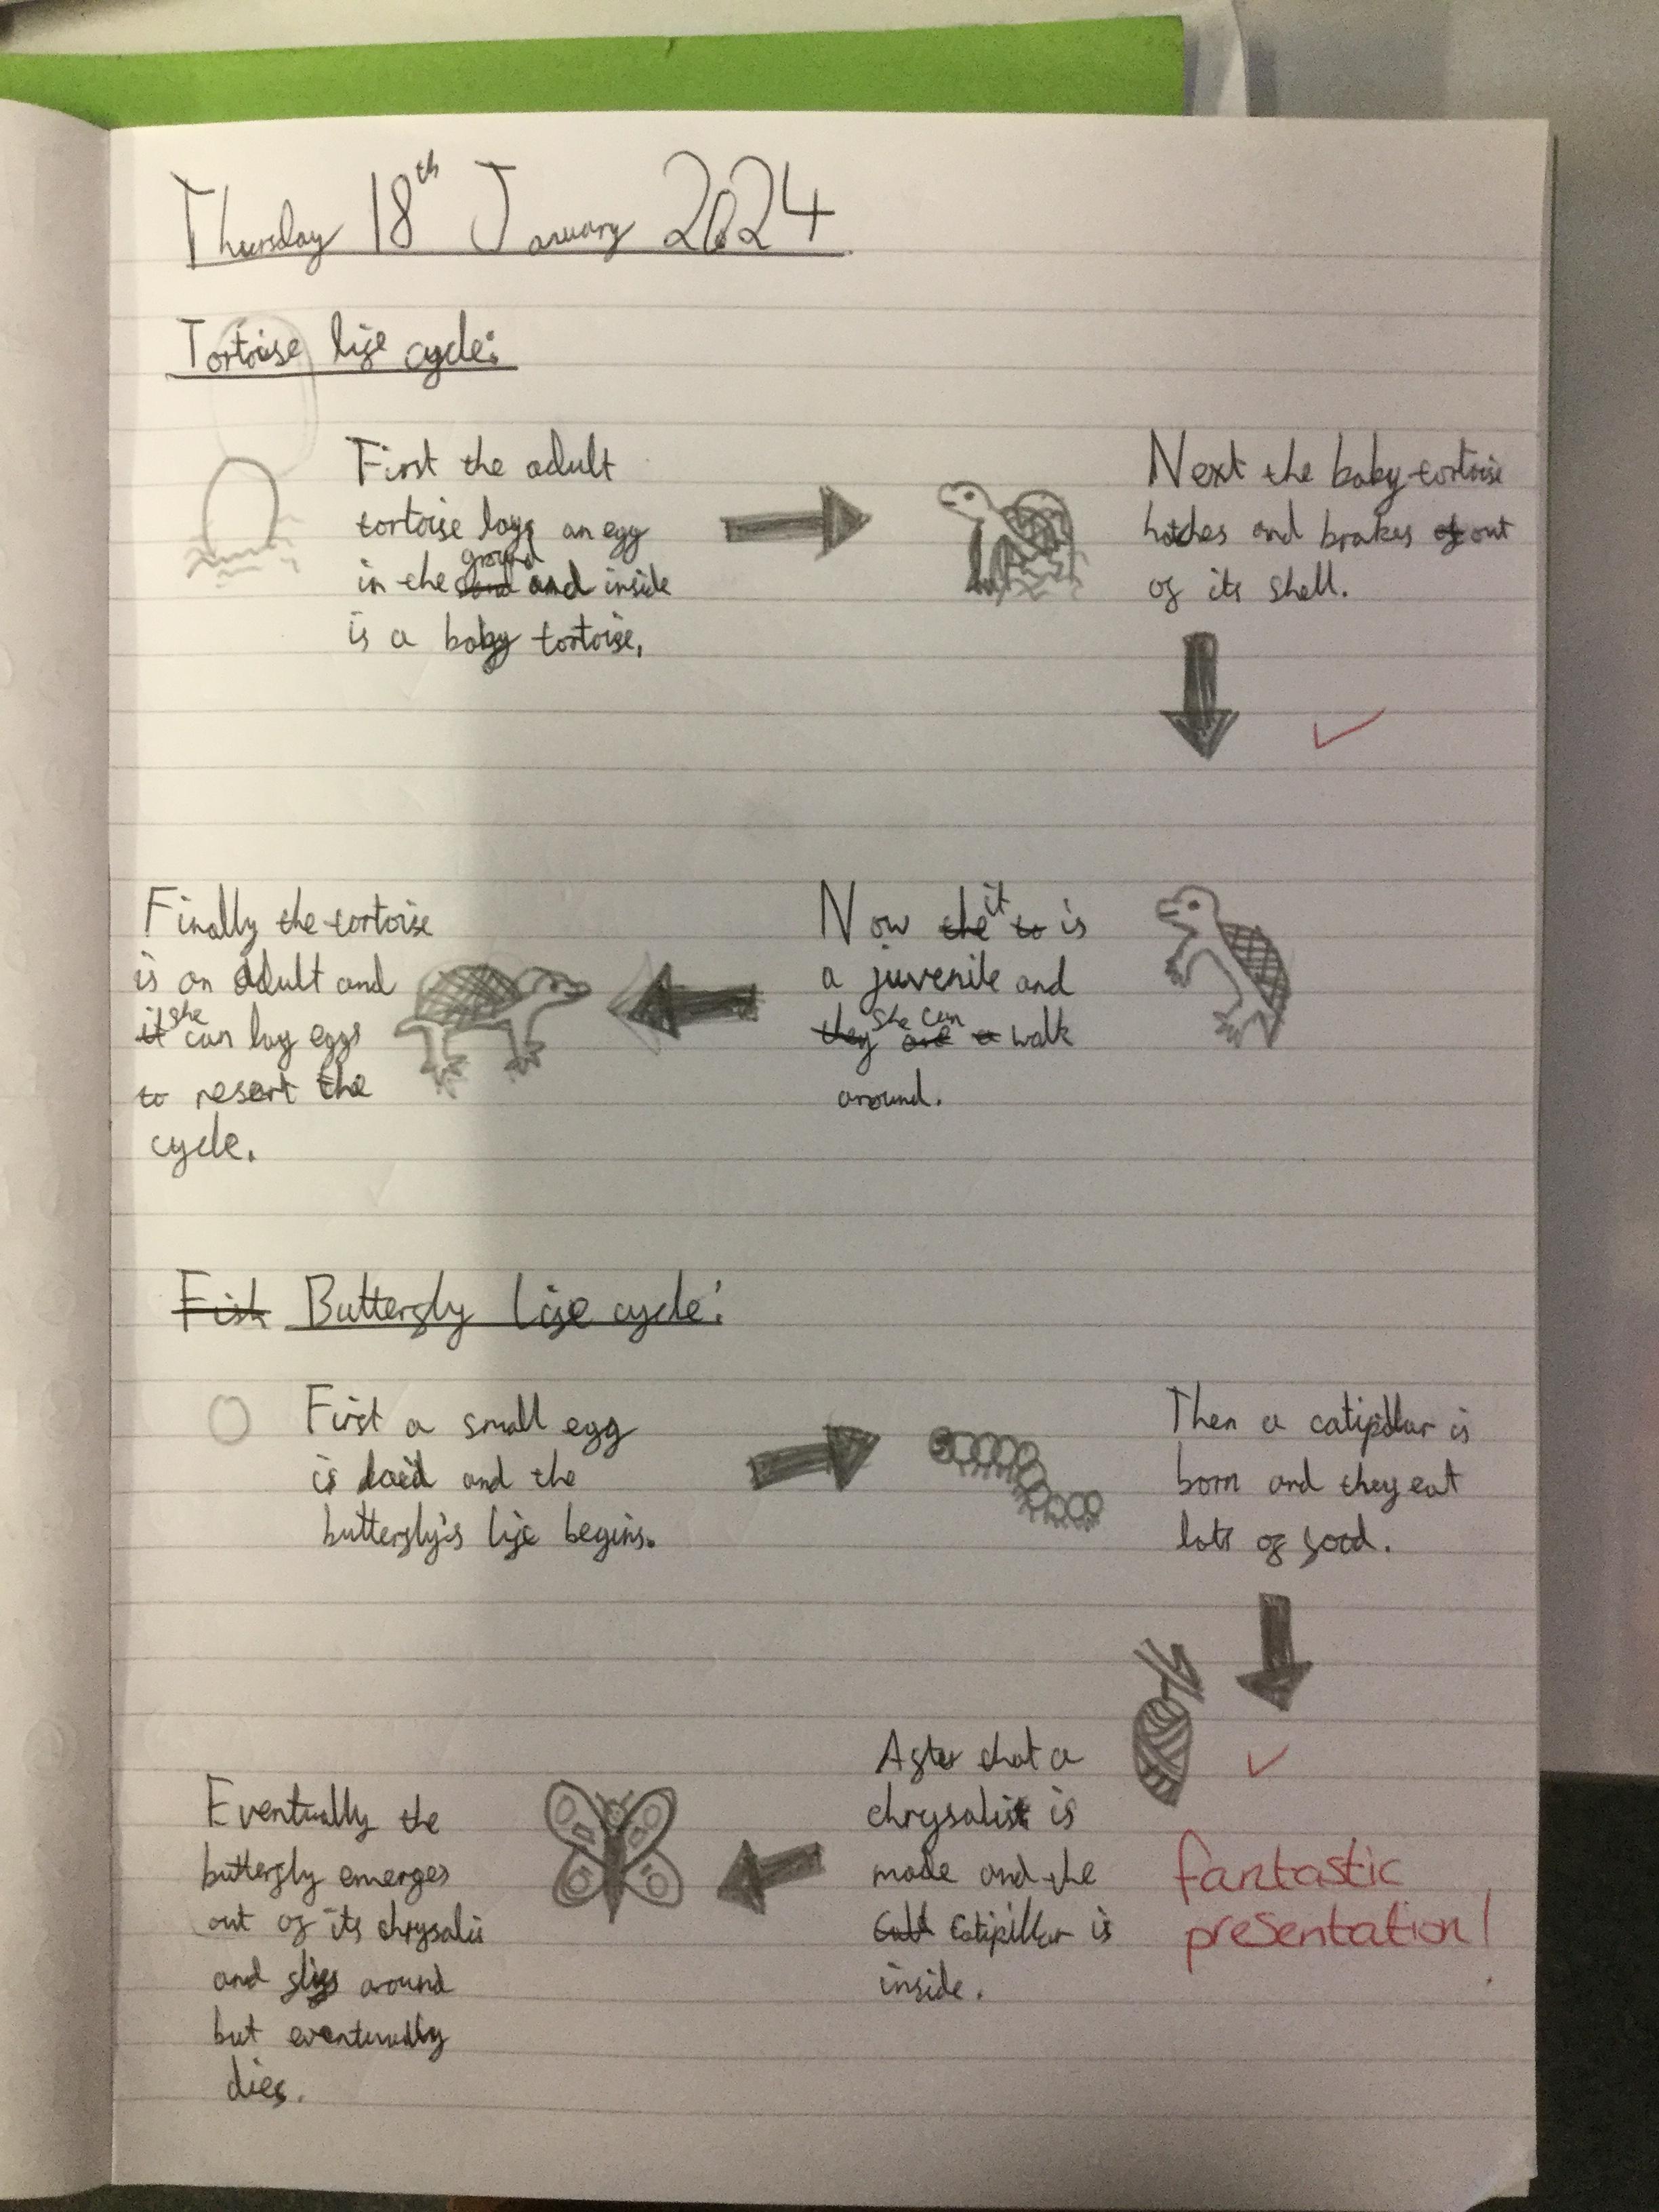 Thursday 18th January 2024
Tortoise life cycle:
First the adult
tortoise lays an egg
in the sand ground and inside
is a baby tortoise.
Next the baby tortoise
hatches and brakes of out
of its shell.
Now the to it is
a juvenile and
they are a she can walk
around.
Finally the tortoise
is an adult and
it she can lay eggs
to resart the
cycle.
Fish Butterfly life cycle:
First a small egg
is laid and the
butterfly's life begins.
Then a catipillar is
born and they eat
lots of food.
After that a
chrysalis is
made and the
catipillar is
inside.
fantastic
presentation!
Eventually the
butterfly emerges
out of its chrysalis
and flies around
but eventually
dies.